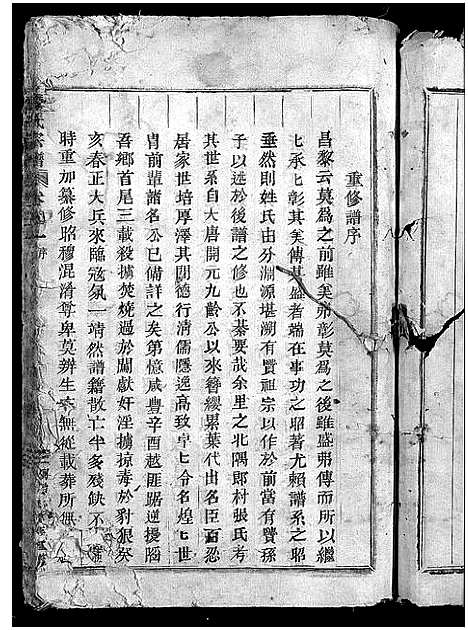 重修譜序
昌黎云莫為之前雖美弗彰莫為之後雖盛弗傳而所以繼
其承七彰其美傳其盛者端在事功之昭著尤賴譜系之昭
垂然則姓氏由分淵源堪溯有賢祖宗以作於前當有賢孫
子以述於後譜之修也不綦要哉余里之北隅郎村張氏考
其世系自大唐開元九齡公以來簪纓累葉代出名臣而忍
居家世培厚澤其間德行清儒隱逸高致卓七令名煌七世
胄前輩諸名公已備詳之矣第憶咸豐辛酉越匪踞逆擾陷
吾鄉首尾三載殺擄焚燒過於闖獻奸淫擄掠毒於豺狠癸
亥春正大兵來臨寇氛一靖然譜籍散亡半多殘缺不
時重加纂修昭穆混淆尊卑莫辨生卒無從載葬所無